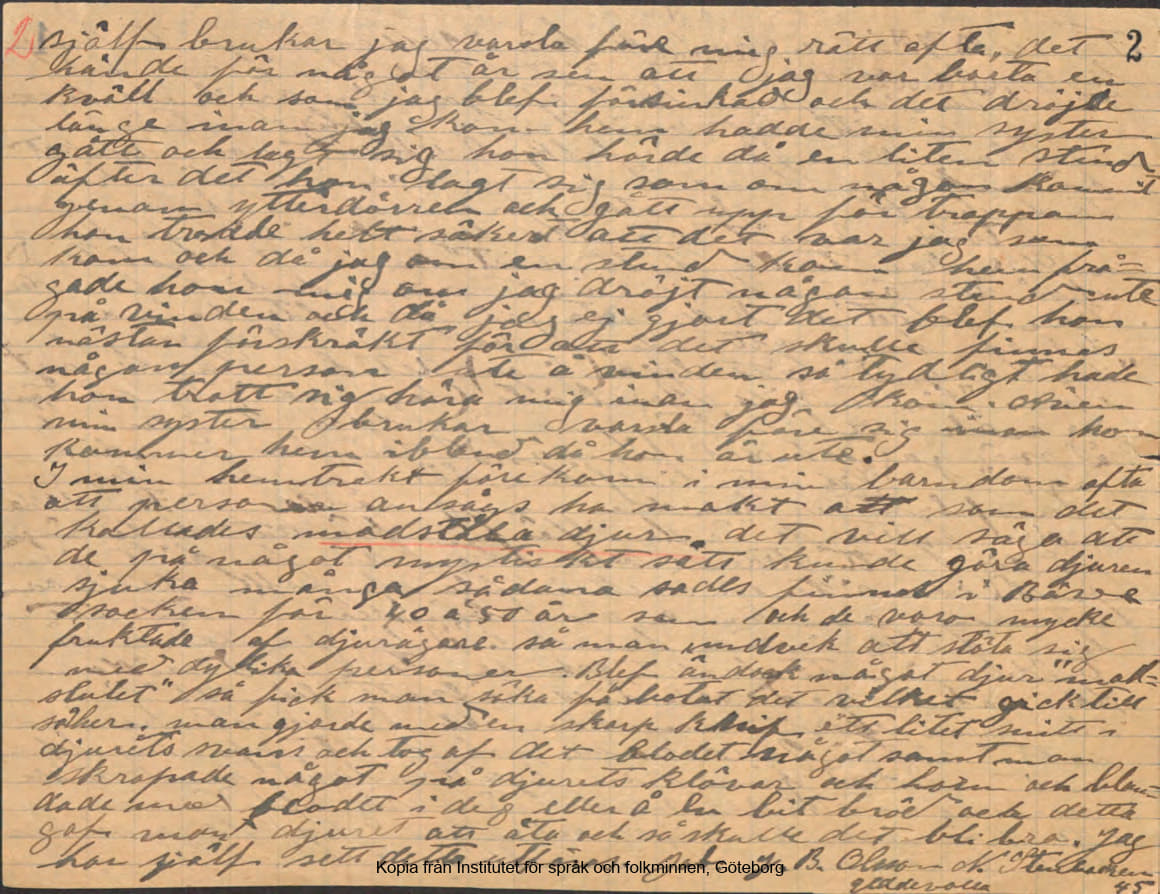 2) själf brukar jag varsla före mig rätt ofta, det 2
hände för något år sen att jag var borta en
kväll och som jag blef försinkad och det dröjde
länge inan jag kom hem hadde min syster
gått och lagt sig hon hörde då en liten stund
äfter det hon lagt sig som om någon kommit
genom ytterdörren och gått upp för trappan
hon trodde helt säkert att det var jag som
kom och då jag om en stund kom hem frå=
gade hon mig om jag dröjt någon stund ute
på vinden och då jag ej gjort det blef hon
nästan förskräkt för att det skulle finnas
någon person ute å vinden så tydligt hade
hon trott sig höra mig inan jag kom. Även
min syster brukar varsla före sig inan hon
kommer hem ibland då hon är ute.
I min hemtrakt förekom i min barndom ofta
att personer ansågs ha makt att som det
kallades modstula djur, det vill säga att
de på något mystiskt sätt kunde göra djuren
sjuka många sådana sades finnas i Bäive
socken för 40 à 50 år sen och de voro mycke
fruktade af djurägare så man undvek att stöta sig
med dylika personer. Blef ändock något djur "mod-
stulet" så fick man söka få botat det vilket gick till
sålken man gjorde med en skarp knif ett litet snitt i
djurets svans och tog af det blodet något samt man
skrapade något på djurets klövar och horn och blan-
dade med blodet i deg eller å en bit bröd och detta
gaf man djuret att äta och så skulle det bli bra. Jag
har själf sett detta J. B. Olson
Uddevalla
Kopia från Institutet för språk och folkminnen, Göteborg